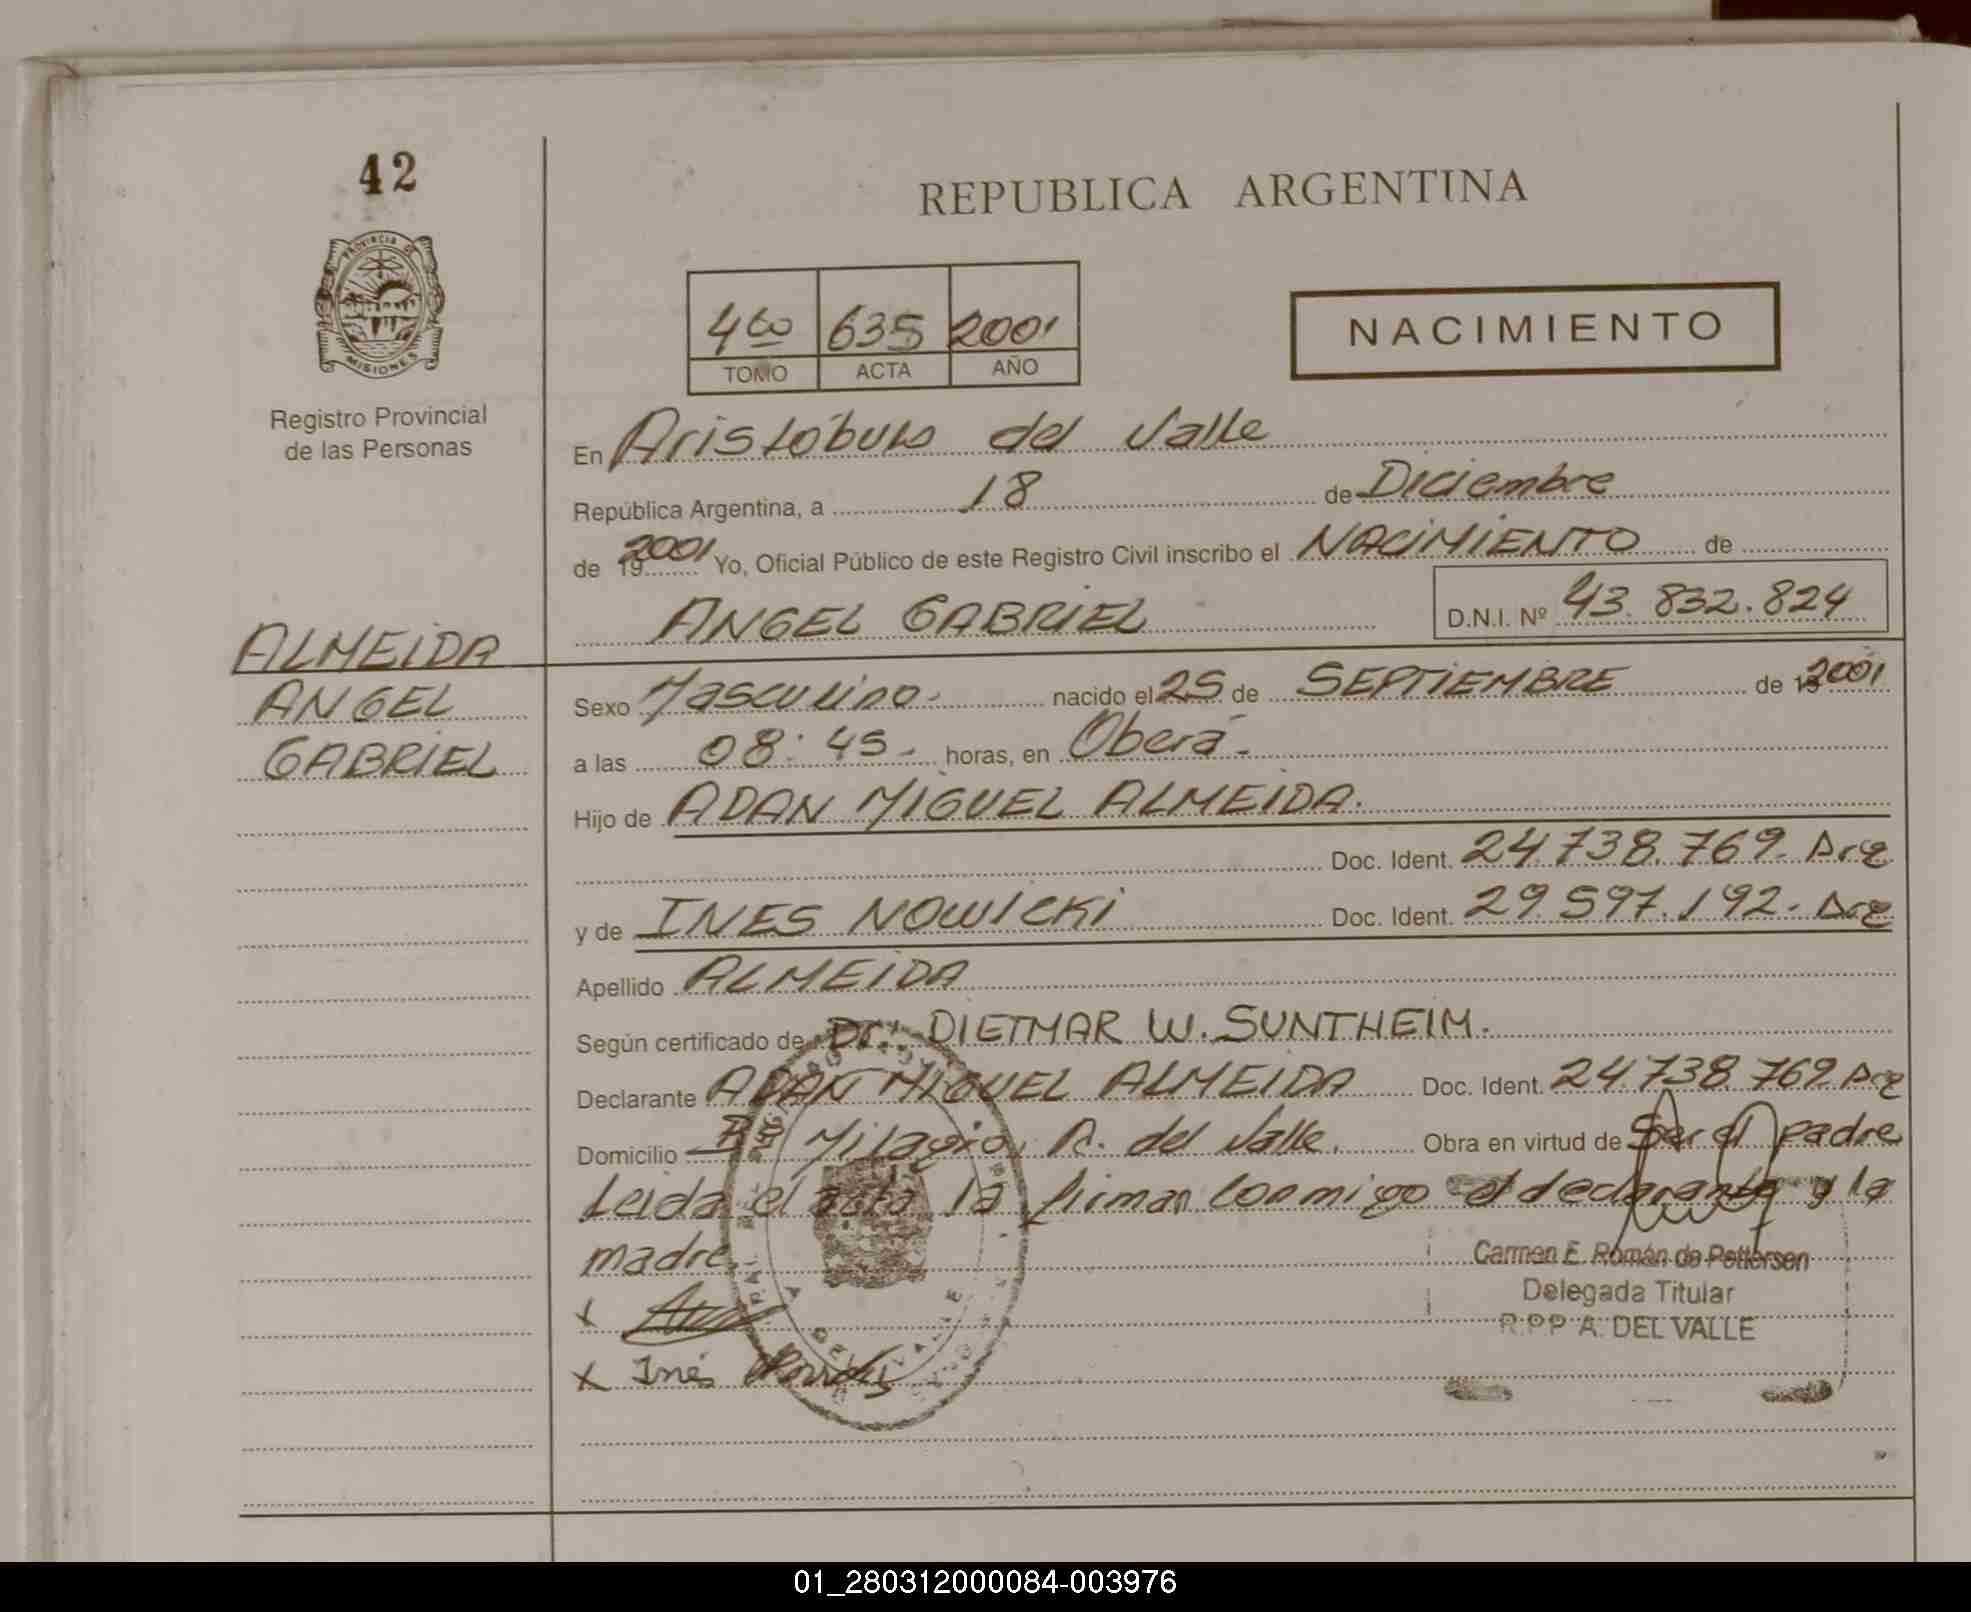 42
REPUBLICA ARGENTINA
PROVINCIA DE
MISIONES
Registro Provincial
de las Personas
4to 635 2001
TOMO ACTA AÑO
NACIMIENTO
En Aristóbulo del Valle
República Argentina, a 18 de Diciembre
de 19 2001 Yo, Oficial Público de este Registro Civil inscribo el NACIMIENTO de
ANGEL GABRIEL D.N.I. Nº 43.832.824
ALMEIDA
ANGEL
GABRIEL
Sexo Masculino. nacido el 25 de SEPTIEMBRE de 19 2001
a las 08:45. horas, en Oberá-
Hijo de ADAN MIGUEL ALMEIDA.
Doc. Ident. 24.738.769. Arg
y de INES NOWICKI Doc. Ident. 29.597.192. Arg
Apellido ALMEIDA
Según certificado de Dr. DIETMAR W. SUNTHEIM.
Declarante ADAN MIGUEL ALMEIDA Doc. Ident. 24.738.769 Arg
Domicilio Milagro, A. del Valle. Obra en virtud de Ser el padre
Leida el acta la firman conmigo el declarante y la
madre.
x
x Inés
Carmen E. Román de Pettersen
Delegada Titular
R.P.P A. DEL VALLE
01_280312000084-003976